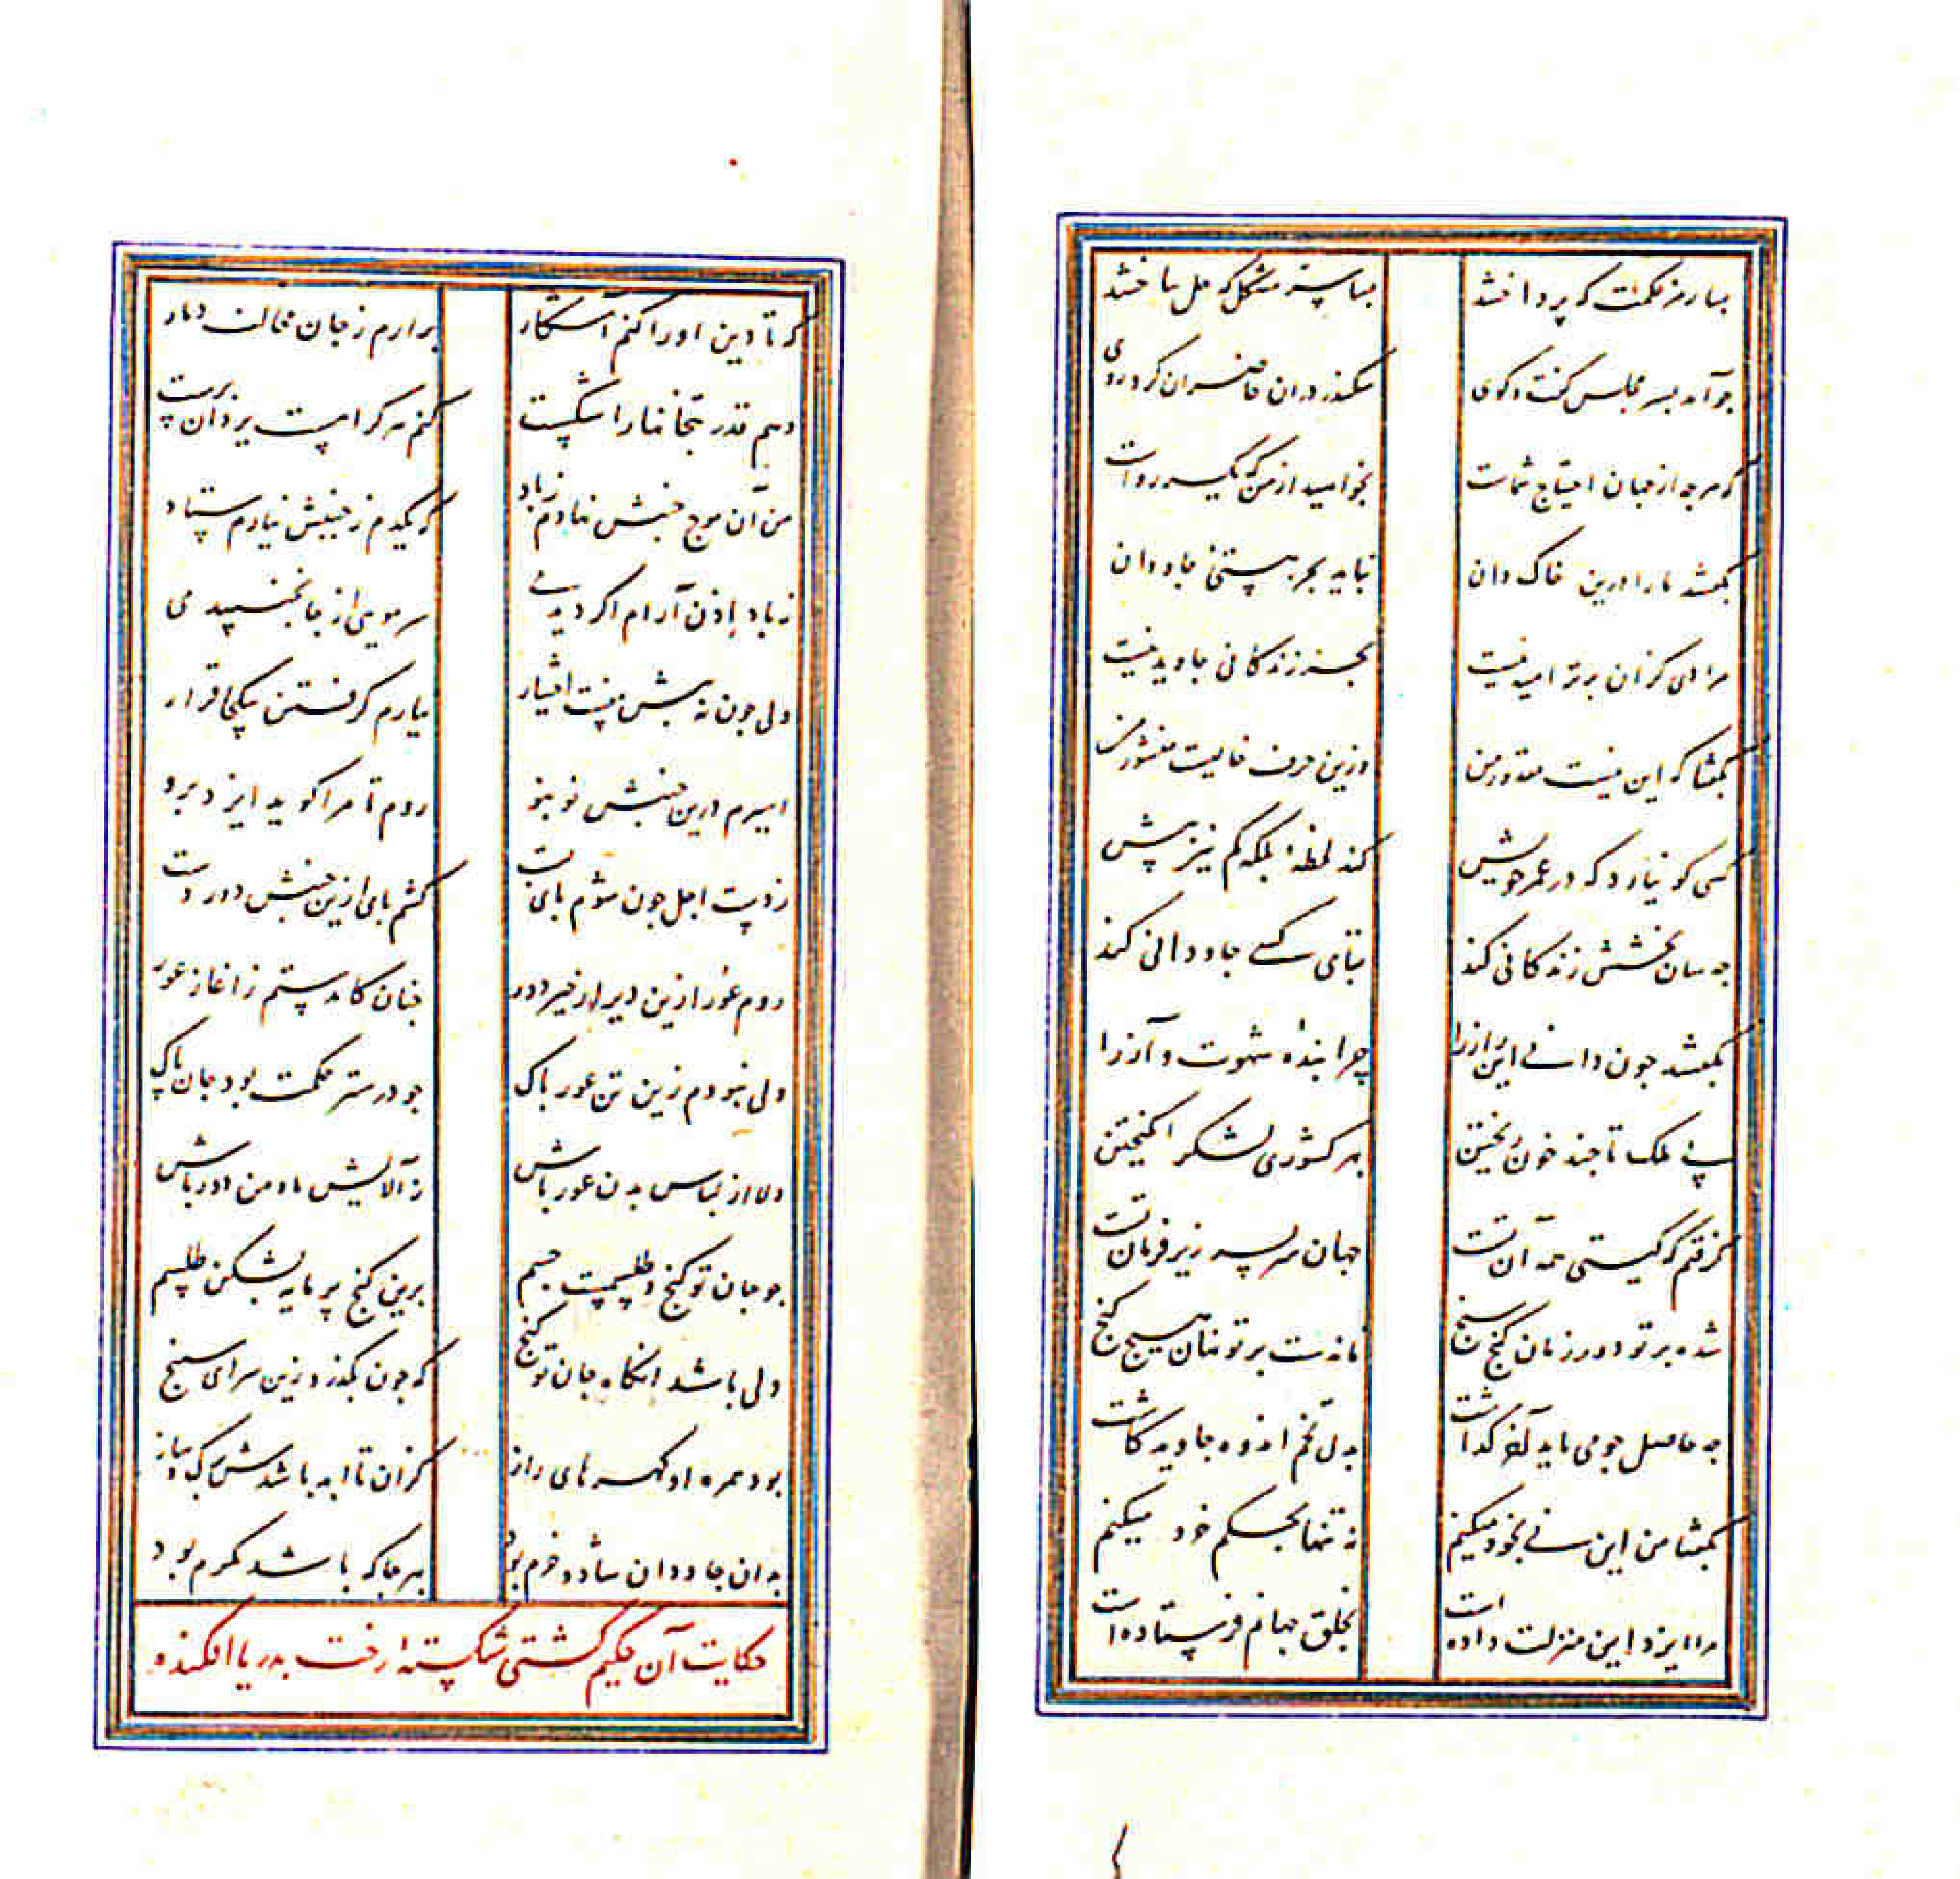 بسا رمز حکمت که پرداختند بسا سر مشکل که حل ساختند
جو آمد بسر مجلس کفت و کوی سکندر در ان حاضران کرد روی
که هر جه از جهان احتیاج شماست بخواهید از من که یکسر رواست
بکفتند ما را درین خاک دان نباید بجز هستی جاودان
مرادی کزان برتر امید نیست بجز زندکانی جاوید نیست
بکفتا که این نیست مقدور من وزین حرف خالیست منشور من
کسی کو نیارد که در عمر خویش کند لحظهٔ بلکه کم نیز بیش
جه سان بخشش زندکانی کند بقای کسی جاودانی کند
بکفتند جون دانی این راز را چرا بندهٔ شهوت و آز را
پی ملک تا جند خون ریختن بهر کشوری لشکر انکیختن
کرفتم که کیتی همه آن تست جهان سر بسر زیر فرمان تست
شده بر تو دور زمان کنج سنج نمانده‌ست بر تو نهان هیچ کنج
جه حاصل جو می باید آخر کذاشت بدل تخم اندوه جاوید کاشت
بکفتا من این نی بخود میکنم نه تنها بحکم خرد میکنم
مرا ایزد این منزلت داده است بخلق جهانم فرستاده است
که تا دین او را کنم آشکار برارم ز جان مخالف دمار
دهم قدر بتخانها را شکست کنم هر کرا هست یزدان پرست
من آن موج جنبش نهادم ز باد که یکدم ز جنبش نیارم ستاد
ز باد ار اذن آرام اکر دیدمی سر مویی از جا نجنبیدمی
ولی جون نه جنبش منست اختیار نیارم کرفتن بیکجا قرار
اسیرم درین جنبش نو بنو روم تا مرا کوید ایزد برو
ز دست اجل جون شوم پای بست کشم پای ازین جنبش دور دست
روم عور ازین دیر از خیر دور جنان کامدستم ز آغاز عور
ولی نبودم زین تن عور باک جو در ستر حکمت بود جان پاک
دلا از لباس بدن عور باش ز آلایش ما و من دور باش
جو جان تو کنج و طلسمست جسم برین کنج پر مایه بشکن طلسم
ولی باشد انکاه جان تو کنج که جون بکذرد زین سرای سپنج
بود همره او کهرهای راز کزان تا ابد باشدش برک و ساز
بدان جاودان شاد و خرم بود بهر جا که باشد مکرم بود
حکایت آن حکیم کشتی شکسته رخت بدریا افکنده